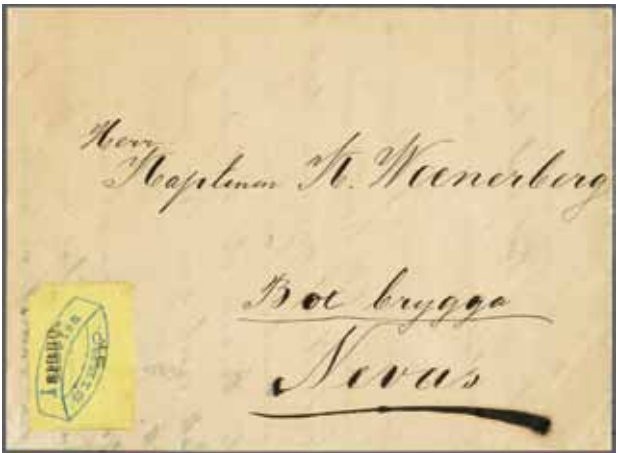 Herr
Kaptenen K. Weenerberg
Boe brygga
Nevas